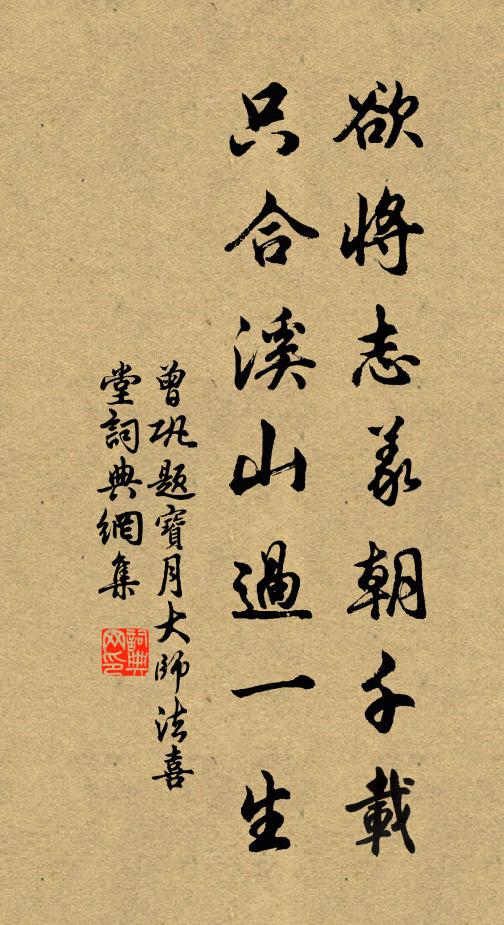 欲將志義朝千載
只合溪山過一生
曾巩題寶月大師法喜
堂詞典網集
詞典
网印